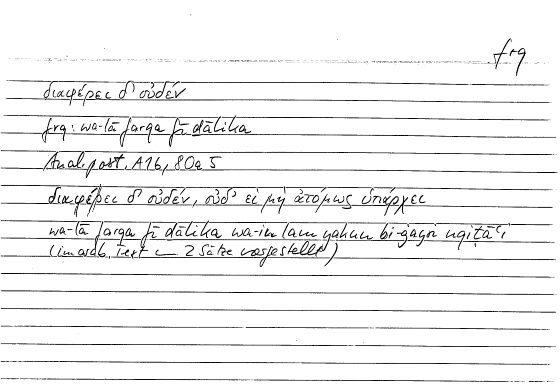 frq
διαφέρει δ' οὐδέν
frq: wa-lā farqa fī ḏālika
Anal. post. A16, 80a 5
διαφέρει δ' οὐδέν, οὐδ' εἰ μὴ ἀτόμως ὑπάρχει
wa-lā farqa fī ḏālika wa-in lam yakun bi-ġayri nqiṭāʿi
(im arab. Text 2 Sätze)